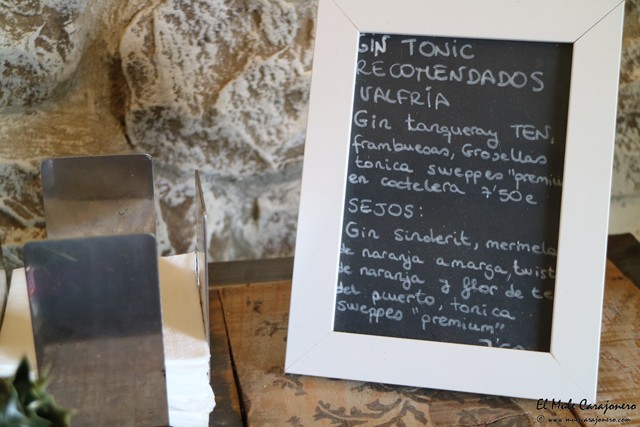 GIN TONIC
RECOMENDADOS
VALFRÍA
Gin tanqueray TEN,
frambuesas, Grosellas
tónica sweppes "premiu
en coctelera 7'50e
SEJOS:
Gin sinderit, mermela
de naranja amarga, twist
de naranja y flor de te
del puerto, tonica
sweppes "premium"
7'50
El Mule Carajonero
© www.mulecarajonero.com